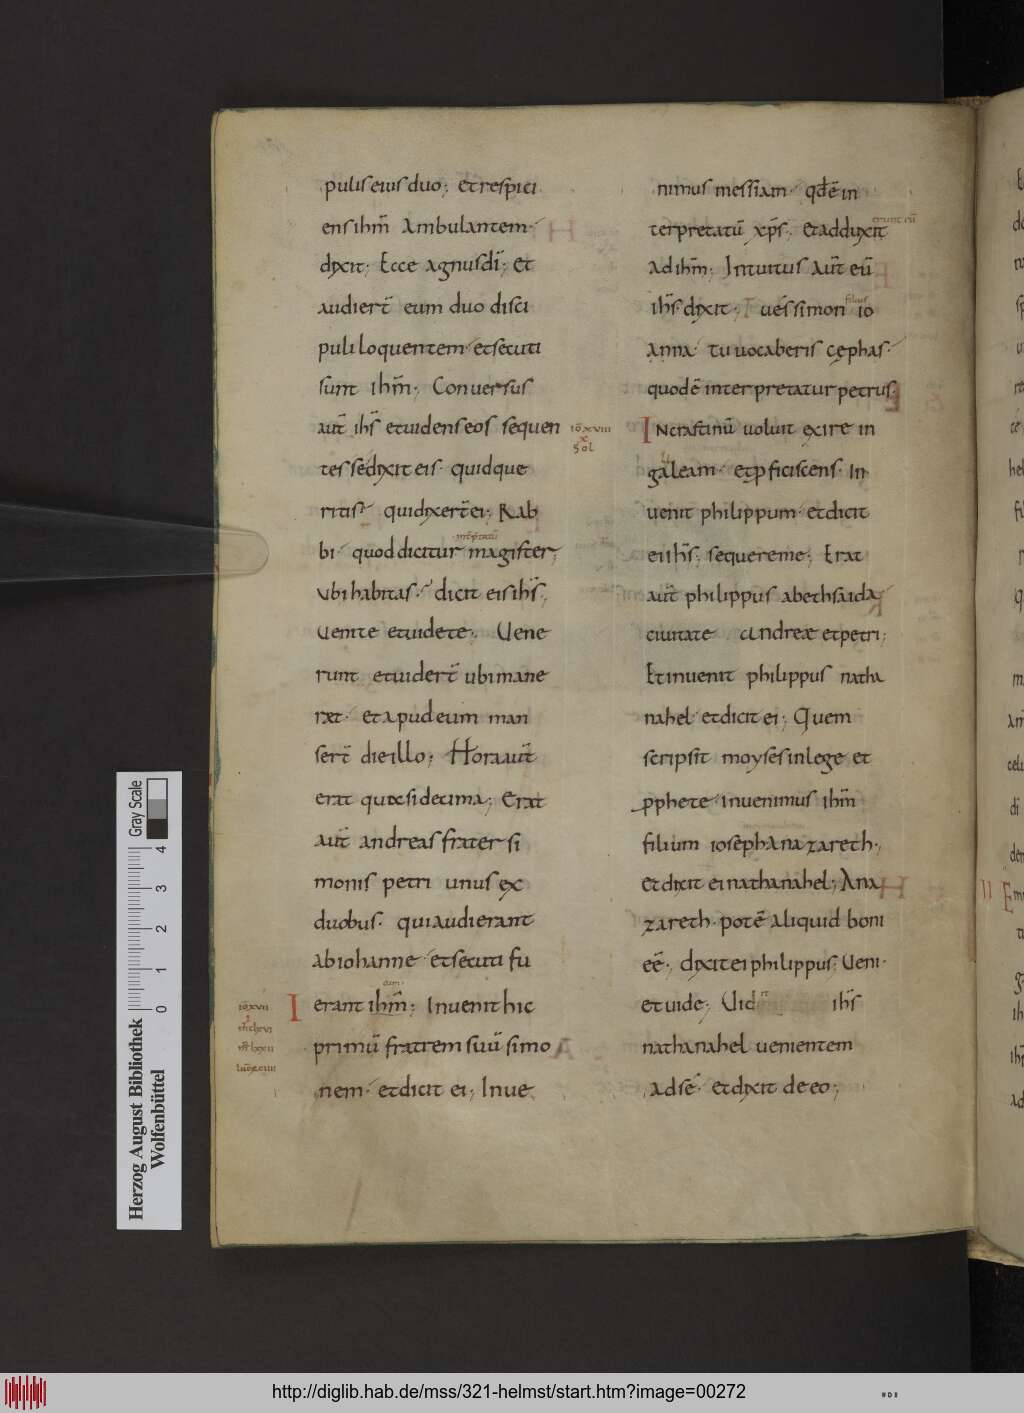 puliseiusduo; etrespici
ensihm̅ Ambulantem·
dixit; Ecce agnusdi̅; et
audiert̅ eum duo disci
puli loquentem· etsecuti
sunt ihm̅; Conuersus
aut̅ ihs̅ etuidenseos sequen
tessedixit eis· quidque
ritis· quidixert̅ei; Rab
bi· quod dicitur magister;
Ubi habitas· dicit eis ihs̅;
Uenite etuidete; Uene
runt etuidert̅ ubi mane
ret· etapudeum man
sert̅ die illo; Hora aut̅
erat quasi decima; Erat
aut̅ andreas frater si
monis petri unus ex
duobus· qui audierant
ab iohanne· etsecuti fu
eum
Ierant ihm̅; Inuenit hic
primu̅ fratrem suu̅ simo
nem· et dicit ei; Inue
io̅xvii
lxxii
io̅xviii
x
Sol
nimus messiam· qd̅ e̅ in
terpretatu̅ xp̅s; Et adduxit
erunt eu̅
Ad ihm̅; Intuitus aut̅ eu̅
ihs̅ dixit; Tu es simon io
filius
Anna· tu uocaberis cephas·
quod e̅ interpretatur petrus·
IN crastinu̅ uoluit exire in
galeam· et p̱ficiscens· In
uenit philippum· et dicit
ei ihs̅; sequere me; Erat
aut̅ philippus a bethsaida
ciuitate andreæ et petri;
Et inuenit philippus natha
nahel· et dicit ei; Quem
scripsit moyses in lege et
pphete· inuenimus ihm̅
filium ioseph a nazareth·
et dixit ei nathanahel; A na
zareth· pote̅ aliquid boni
ee̅· dixit ei philippus; Ueni·
et uide; Uid ihs̅
nathanahel uenientem
ad se· et dixit de eo;
Herzog August Bibliothek
Wolfenbüttel
0 1 2 3 4
Gray Scale
http://diglib.hab.de/mss/321-helmst/start.htm?image=00272